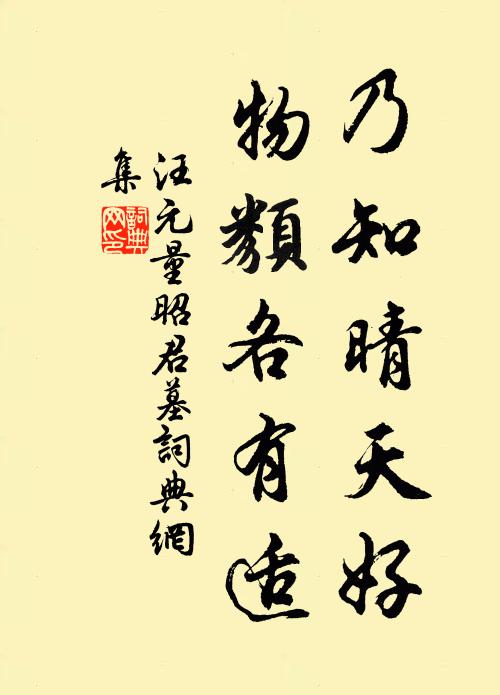 乃知晴天好
物類各有适
汪元量昭君墓詞典網
集
詞典
网印